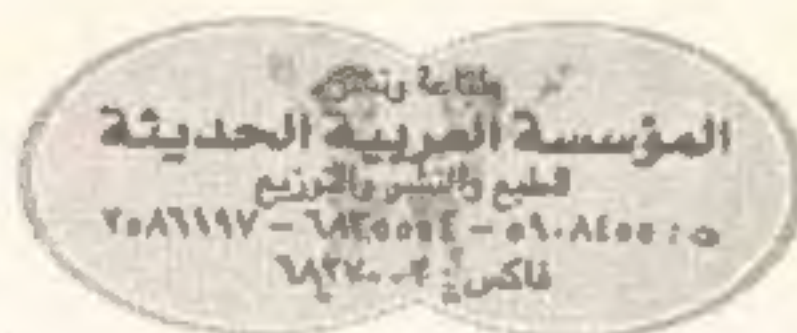 طباعة ونشر
المؤسسة العربية الحديثة
للطبع والنشر والتوزيع
ت : ٥٩٠٨٤٥٥ – ٦٨٣٥٥٥٤ – ٢٥٨٦١٩٧
فاكس :